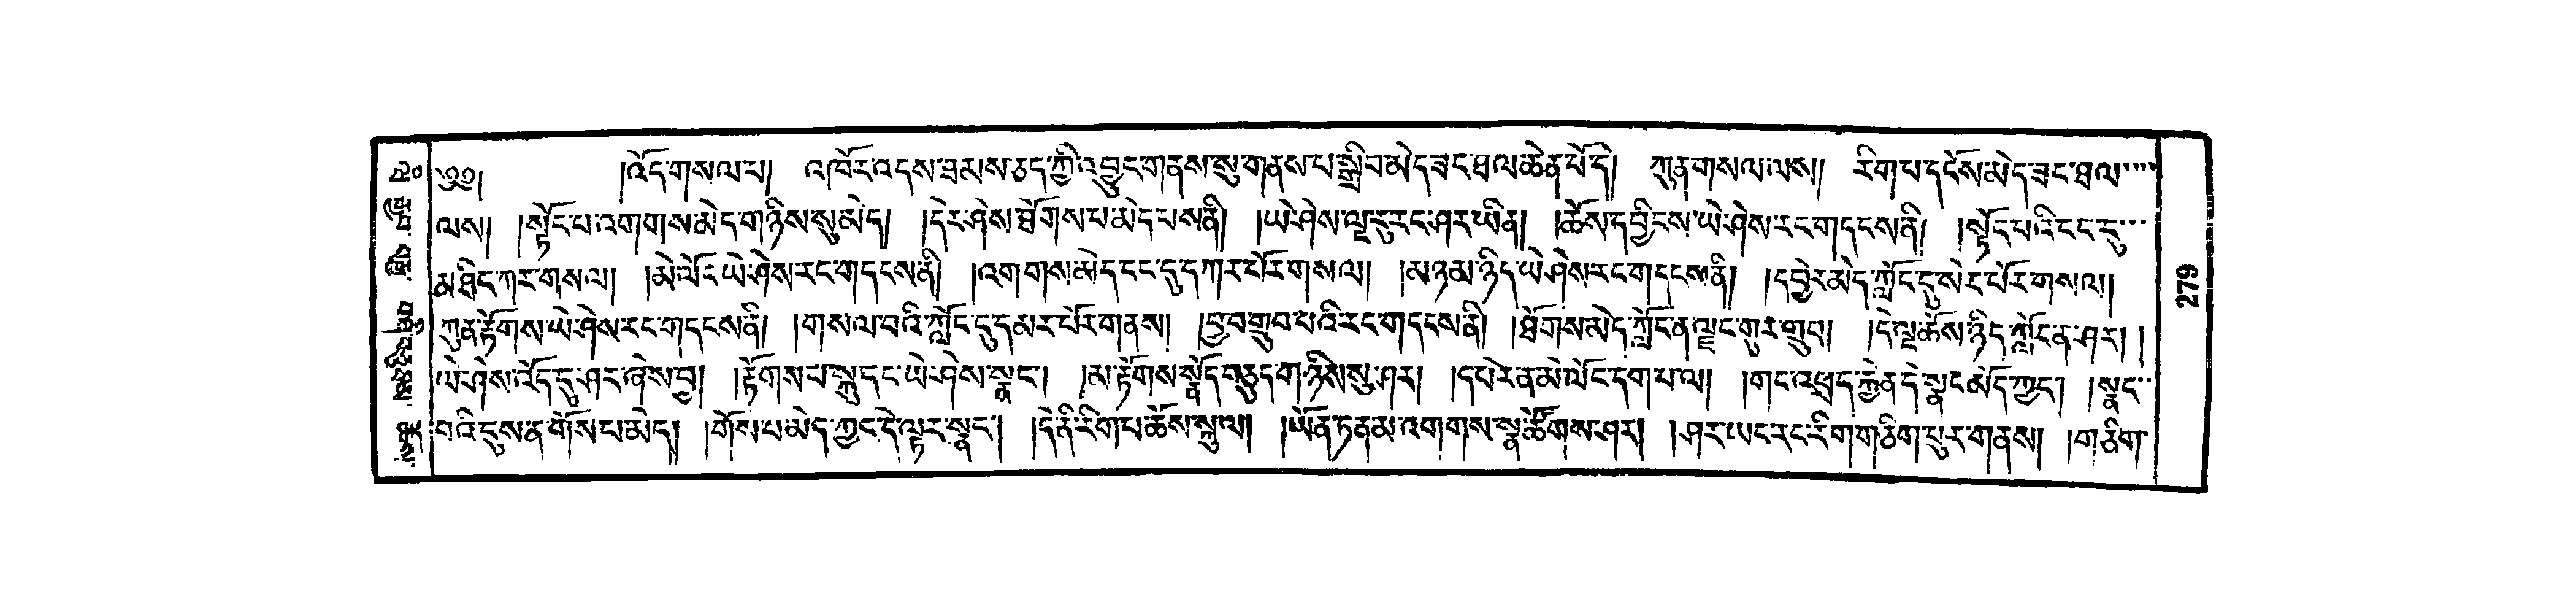 ༄༅། །འོད་གསལ་བ། འཁོར་འདས་ཐམས་ཅད་ཀྱི་འབྱུང་གནས་སུ་གནས་པ་སྒྲིབ་མེད་ཟང་ཐལ་ཆེན་པོ་དེ། ཀུན་གསལ་ལས། རིག་པ་དངོས་མེད་ཟང་ཐལ་
ལས། །སྟོང་པ་འགགས་མེད་གཉིས་སུ་མེད། །དེར་ཤེས་ཐོགས་པ་མེད་པས་ནི། །ཡེ་ཤེས་ལྔ་རུ་རང་ཤར་ཡིན། །ཆོས་དབྱིངས་ཡེ་ཤེས་རང་གདངས་ནི། །སྟོང་པའི་ངང་དུ་
མཐིང་ཀར་གསལ། །མེ་ལོང་ཡེ་ཤེས་རང་གདངས་ནི། །འགགས་མེད་ངང་དུ་དཀར་པོར་གསལ། །མཉམ་ཉིད་ཡེ་ཤེས་རང་གདངས་ནི། །དབྱེར་མེད་ཀློང་དུ་སེར་པོར་གསལ།
ཀུན་རྟོགས་ཡེ་ཤེས་རང་གདངས་ནི། །གསལ་བའི་ཀློང་དུ་དམར་པོར་གནས། །བྱ་བ་གྲུབ་པའི་རང་གདངས་ནི། །ཐོགས་མེད་ཀློང་ན་ལྗང་གུར་གྲུབ། །དེ་ལྔ་ཆོས་ཉིད་ཀློང་ན་ཤར། །
ཡེ་ཤེས་འོད་དུ་ཤར་ཞེས་བྱ། །རྟོགས་པ་སྐུ་དང་ཡེ་ཤེས་སྣང་། །མ་རྟོགས་སྣོད་བཅུད་གཉིས་སུ་ཤར། །དཔེར་ན་མེ་ལོང་དག་པ་ལ། །གང་འཕྲད་རྐྱེན་དེ་སྣང་མོད་ཀྱང་། །སྣང་
བའི་དུས་ན་གོས་པ་མེད། །གོས་པ་མེད་ཀྱང་དེ་ལྟར་སྣང་། །དེ་ནི་རིག་པ་ཆོས་སྐུ་ལ། །ཡོན་ཏན་མ་འགགས་སྣ་ཚོགས་ཤར། །ཤར་ཡང་རང་རིག་གཅིག་པུར་གནས། །གཅིག་
279